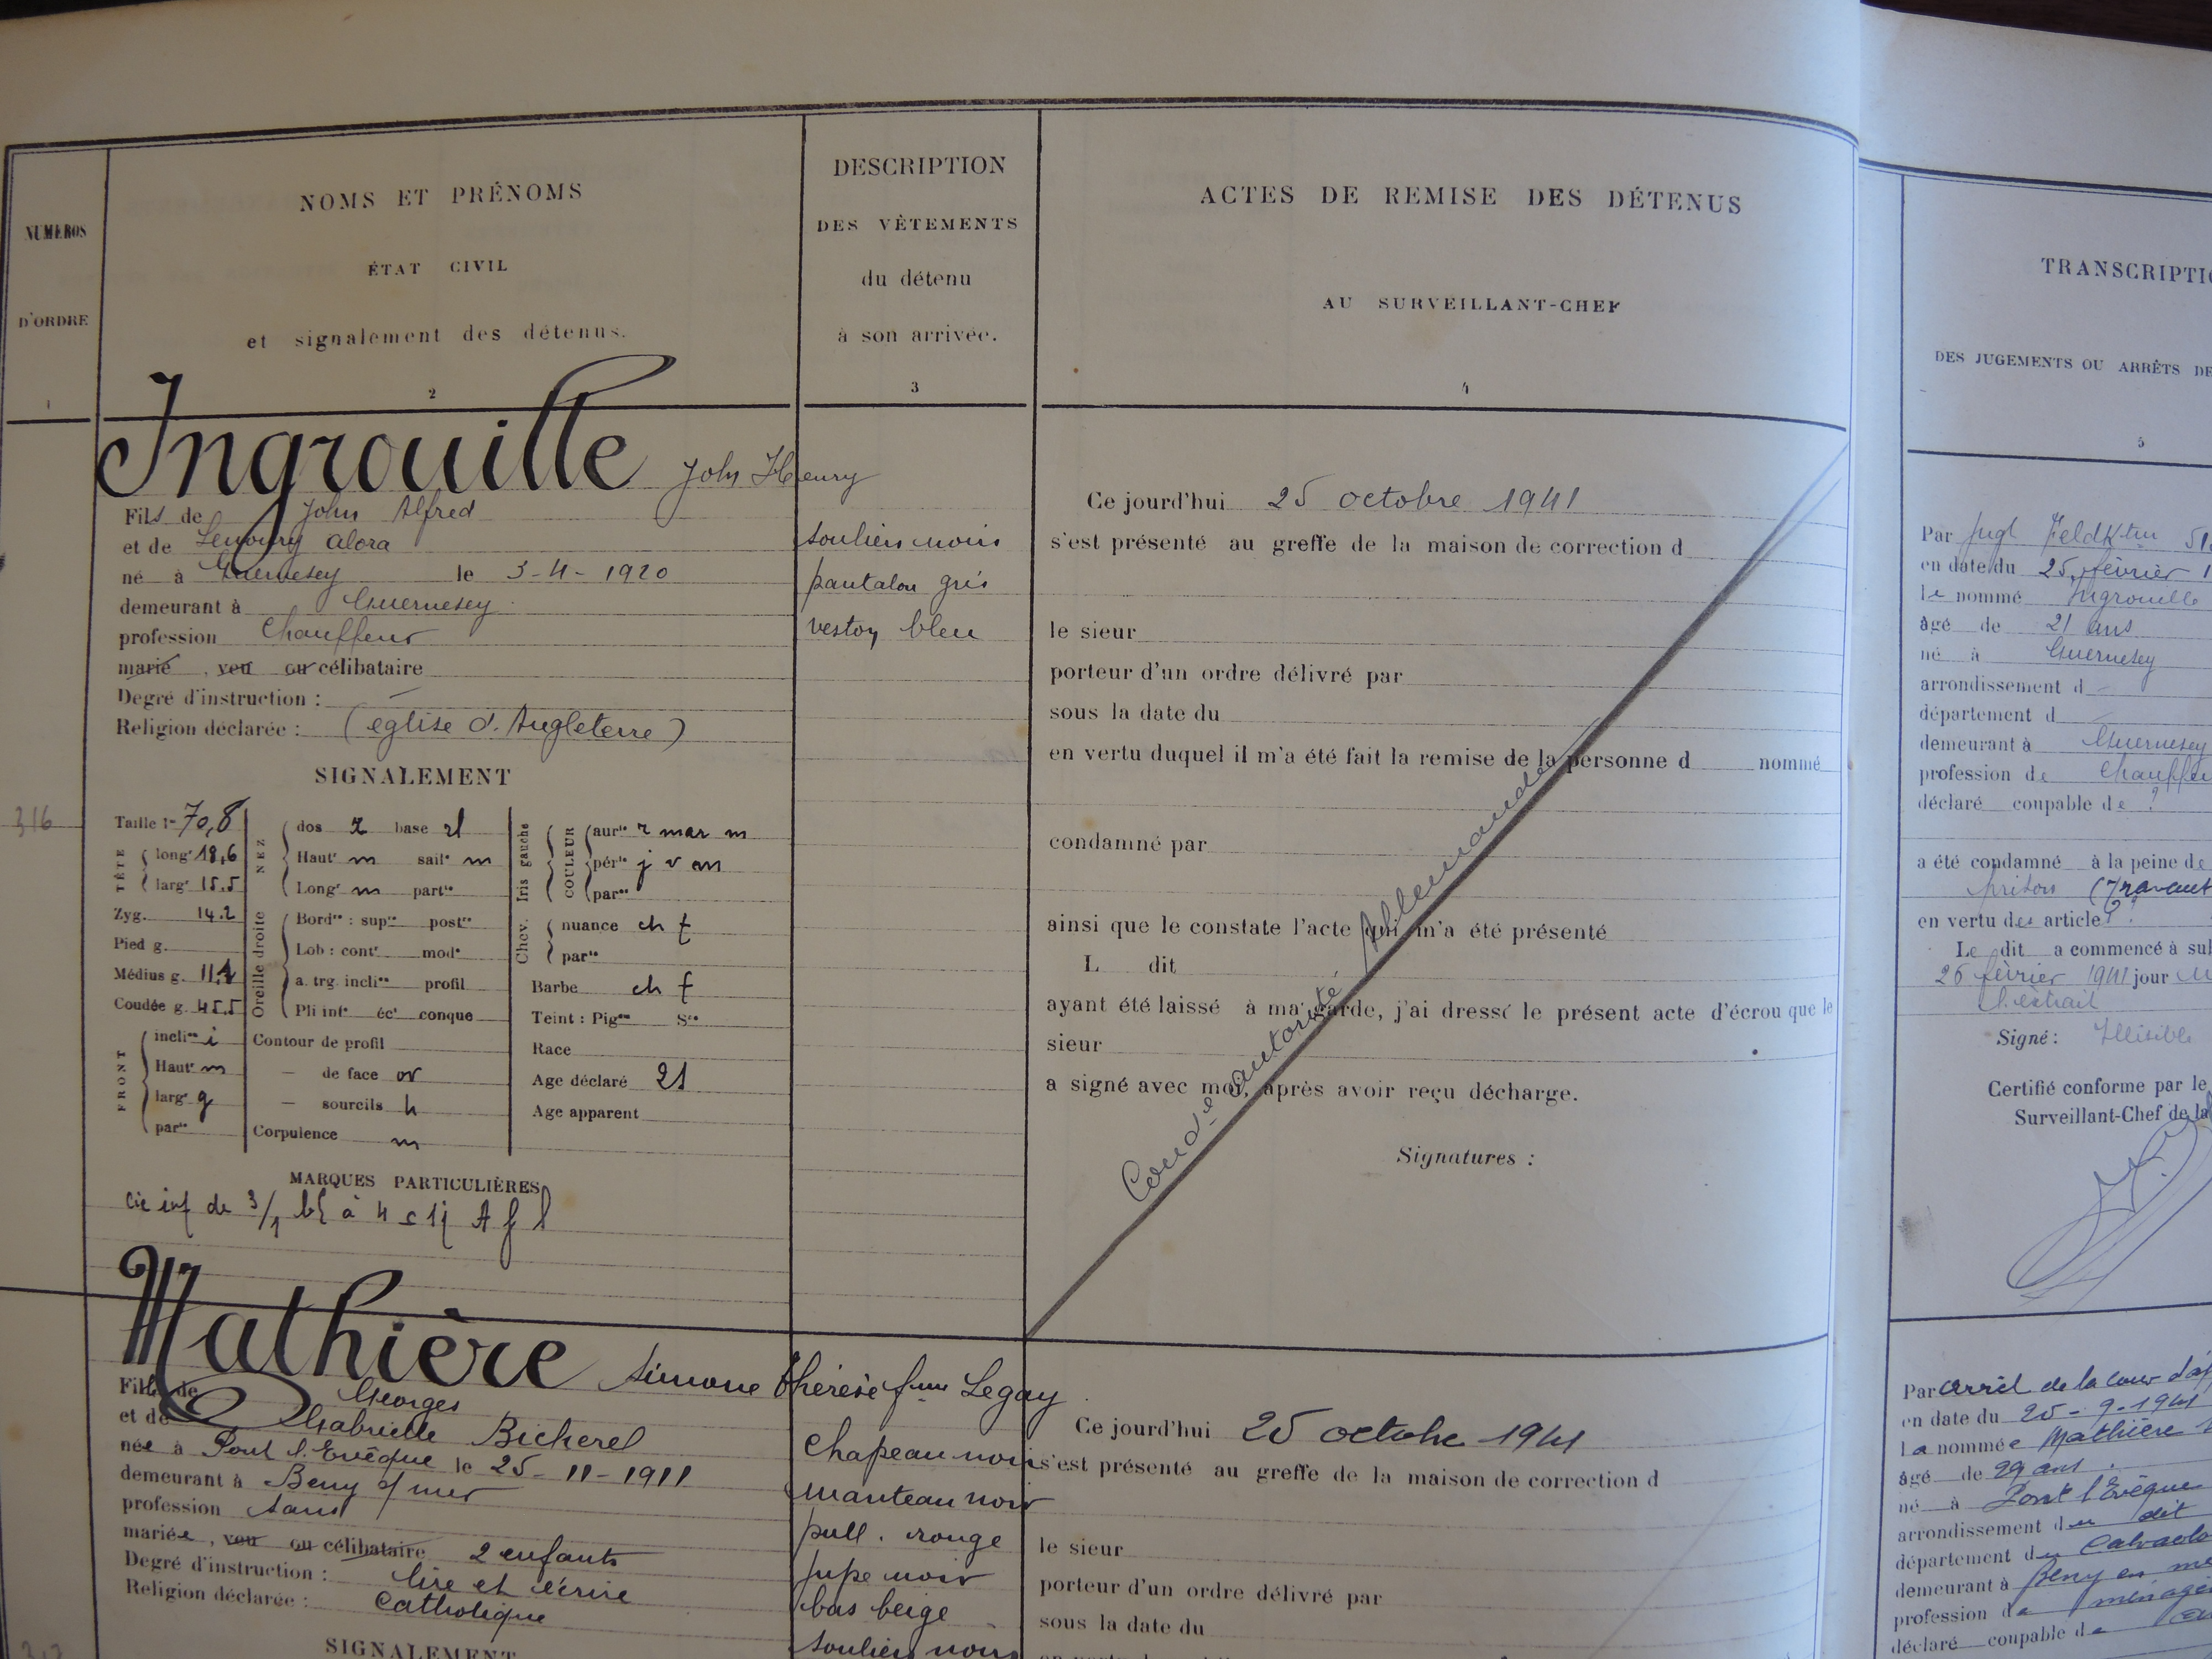 NUMÉROS
D'ORDRE
1
NOMS ET PRÉNOMS
ÉTAT CIVIL
et signalement des détenus.
2
DESCRIPTION
DES VÊTEMENTS
du détenu
à son arrivée.
3
ACTES DE REMISE DES DÉTENUS
AU SURVEILLANT-CHEF
4
316
Ingrouille John Henry
Fils de John Alfred
et de Lenoury alora
né à Guernesey le 3-4-1920
demeurant à Guernesey
profession Chauffeur
marié, veu ou célibataire
Degré d'instruction : —
Religion déclarée : (église d'Angleterre)
SIGNALEMENT
Taille 1m 70,8
TÊTE long' 18,6
larg' 15.5
Zyg. 14.2
Pied g.
Médius g. 11,
Coudée g. 45.5
FRONT incli on i
Haut' m
larg' g
par té
NEZ dos base
Haut' m sail e m
Long' m part té
Oreille droite Bord re : sup re post re
Lob : cont r mod é
a. trg. incli on profil
Pli inf r éc t conque
Contour de profil
— de face ov
— sourcils h
Corpulence m
Iris gauche COULEUR aur le r mar m
pér ie j v m
par tés
Chev. nuance ch f
par té
Barbe ch f
Teint : Pig on S ne
Race
Age déclaré 21
Age apparent
MARQUES PARTICULIÈRES
cic inf de 3/1 à 4
souliers noirs
pantalon gris
veston bleu
Ce jourd'hui 25 octobre 1941
s'est présenté au greffe de la maison de correction d
le sieur
porteur d'un ordre délivré par
sous la date du
en vertu duquel il m'a été fait la remise de la personne d nommé
condamné par
ainsi que le constate l'acte qui m'a été présenté
L dit
ayant été laissé à ma garde, j'ai dressé le présent acte d'écrou que le
sieur
a signé avec moi, après avoir reçu décharge.
Signatures :
Cond é autorité Allemande
Mathière Simone thérèse fme Legay
Fille de Georges
et de Gabrielle Bicherel
née à Pont l'Evêque le 25-11-1911
demeurant à Beny s/ mer
profession sans
mariée, veu ou célibataire 2 enfants
Degré d'instruction : lire et écrire
Religion déclarée : Catholique
SIGNALEMENT
Chapeau noir
manteau noir
pull. rouge
jupe noir
bas beige
souliers noirs
Ce jourd'hui 25 octobre 1941
s'est présenté au greffe de la maison de correction d
le sieur
porteur d'un ordre délivré par
sous la date du
TRANSCRIPTI
DES JUGEMENTS OU ARRÊTS DE
5
Par Jugt Feldktur 51
en date du 25 février 1
le nommé Ingrouille
âgé de 21 ans
né à Guernesey
arrondissement d —
département d —
demeurant à Guernesey
profession de Chauffeu
déclaré coupable de ?
a été condamné à la peine de
prison (Travaux
en vertu des article ?
Le dit a commencé à sub
26 février 1941 jour
l'extrait
Signé : Illisible
Certifié conforme par le
Surveillant-Chef de la
Par arrêt de la Cour d'ap
en date du 25-9-1941
la nommée Mathière
âgé de 29 ans
né à Pont l'Evêque
arrondissement du dit
département du Calvados
demeurant à Beny en me
profession de ménagè
déclaré coupable de